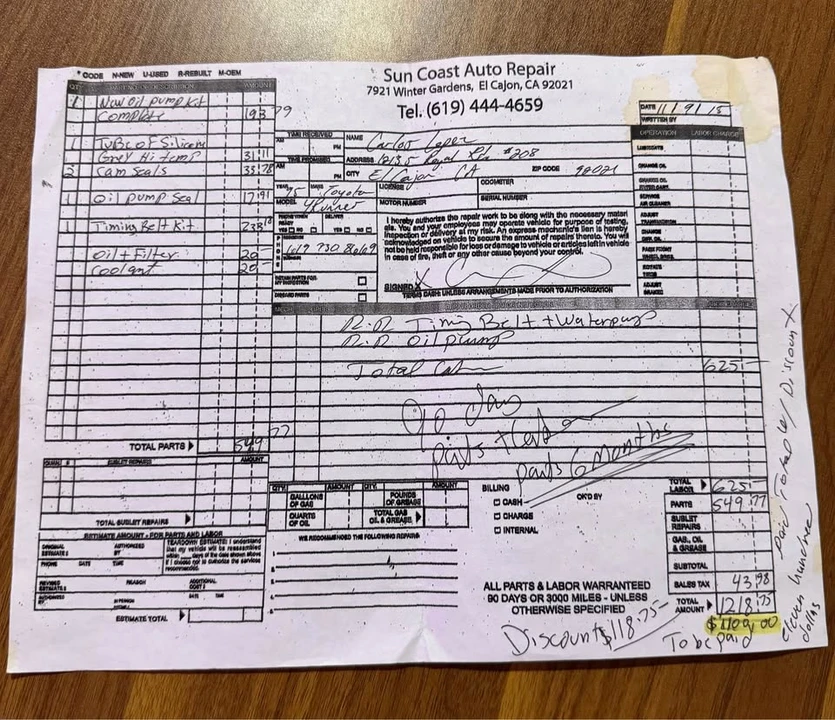 * CODE N-NEW U-USED R-REBUILT M-OEM
Sun Coast Auto Repair
7921 Winter Gardens, El Cajon, CA 92021
Tel. (619) 444-4659
AMOUNT
1 New oil pump Kit
Complete 193 79
1 Tube of Silicone
Grey Hi temp 31 11
2 Cam Seals 35 78
1 Oil pump Seal 17 91
1 Timing Belt Kit
Oil + Filter 20
Coolant 20
TOTAL PARTS 549 77
QUAN. SUBLET REPAIRS AMOUNT
TOTAL SUBLET REPAIRS
ESTIMATE AMOUNT - FOR PARTS AND LABOR
ORIGINAL ESTIMATE $
AUTHORIZED BY
PHONE DATE TIME
TEARDOWN ESTIMATE: I understand that my vehicle will be reassembled within days of the date shown above if I choose not to authorize the services recommended.
REVISED ESTIMATE $
REASON
ADDITIONAL COST $
AUTHORIZED BY
IN PERSON
DATE TIME
ESTIMATE TOTAL
DATE
WRITTEN BY
TIME RECEIVED
AM PM
TIME PROMISED
AM PM
NAME Carlos Lopez
ADDRESS Royal #208
CITY El Cajon CA ZIP CODE 92021
YEAR 95 MAKE Toyota
MODEL 4Runner
LICENSE
ODOMETER
MOTOR NUMBER
SERIAL NUMBER
PHONE WHEN READY YES NO
DELIVER YES NO
619 730 8669
RETAIN PARTS FOR MY INSPECTION
DISCARD PARTS
I hereby authorize the repair work to be along with the necessary materials. You and your employees may operate vehicle for purpose of testing,
inspection or delivery at my risk. An express mechanic's lien is hereby
acknowledged on vehicle to secure the amount of repairs thereto. You will
not be held responsible for loss or damage to vehicle or articles left in vehicle
in case of fire, theft or any other cause beyond your control.
SIGNED X
TERMS CASH: UNLESS ARRANGEMENTS MADE PRIOR TO AUTHORIZATION
OPERATION LABOR CHARGE
LUBRICATE
CHANGE OIL
ADJUST TRANSMISSION
CHANGE DIFF. OIL
ROTATE TIRES
ADJUST BRAKES
R.R Timing Belt + Water pump
R.R Oil pump
Total 625
90 day
parts + Labor
parts 6 Months
QTY. AMOUNT QTY. AMOUNT
GALLONS OF GAS
POUNDS OF GREASE
QUARTS OF OIL
TOTAL GAS OIL & GREASE
WE RECOMMENDED THE FOLLOWING REPAIRS:
BILLING
CASH
CHARGE
INTERNAL
OK'D BY
TOTAL LABOR 625
PARTS 549 77
SUBLET REPAIRS
GAS, OIL & GREASE
SUBTOTAL
SALES TAX 43 98
TOTAL AMOUNT 1218 75
ALL PARTS & LABOR WARRANTED
90 DAYS OR 3000 MILES - UNLESS
OTHERWISE SPECIFIED
Discount $118.75
To be paid
paid Total w/ Discount
eleven hundred
dollars